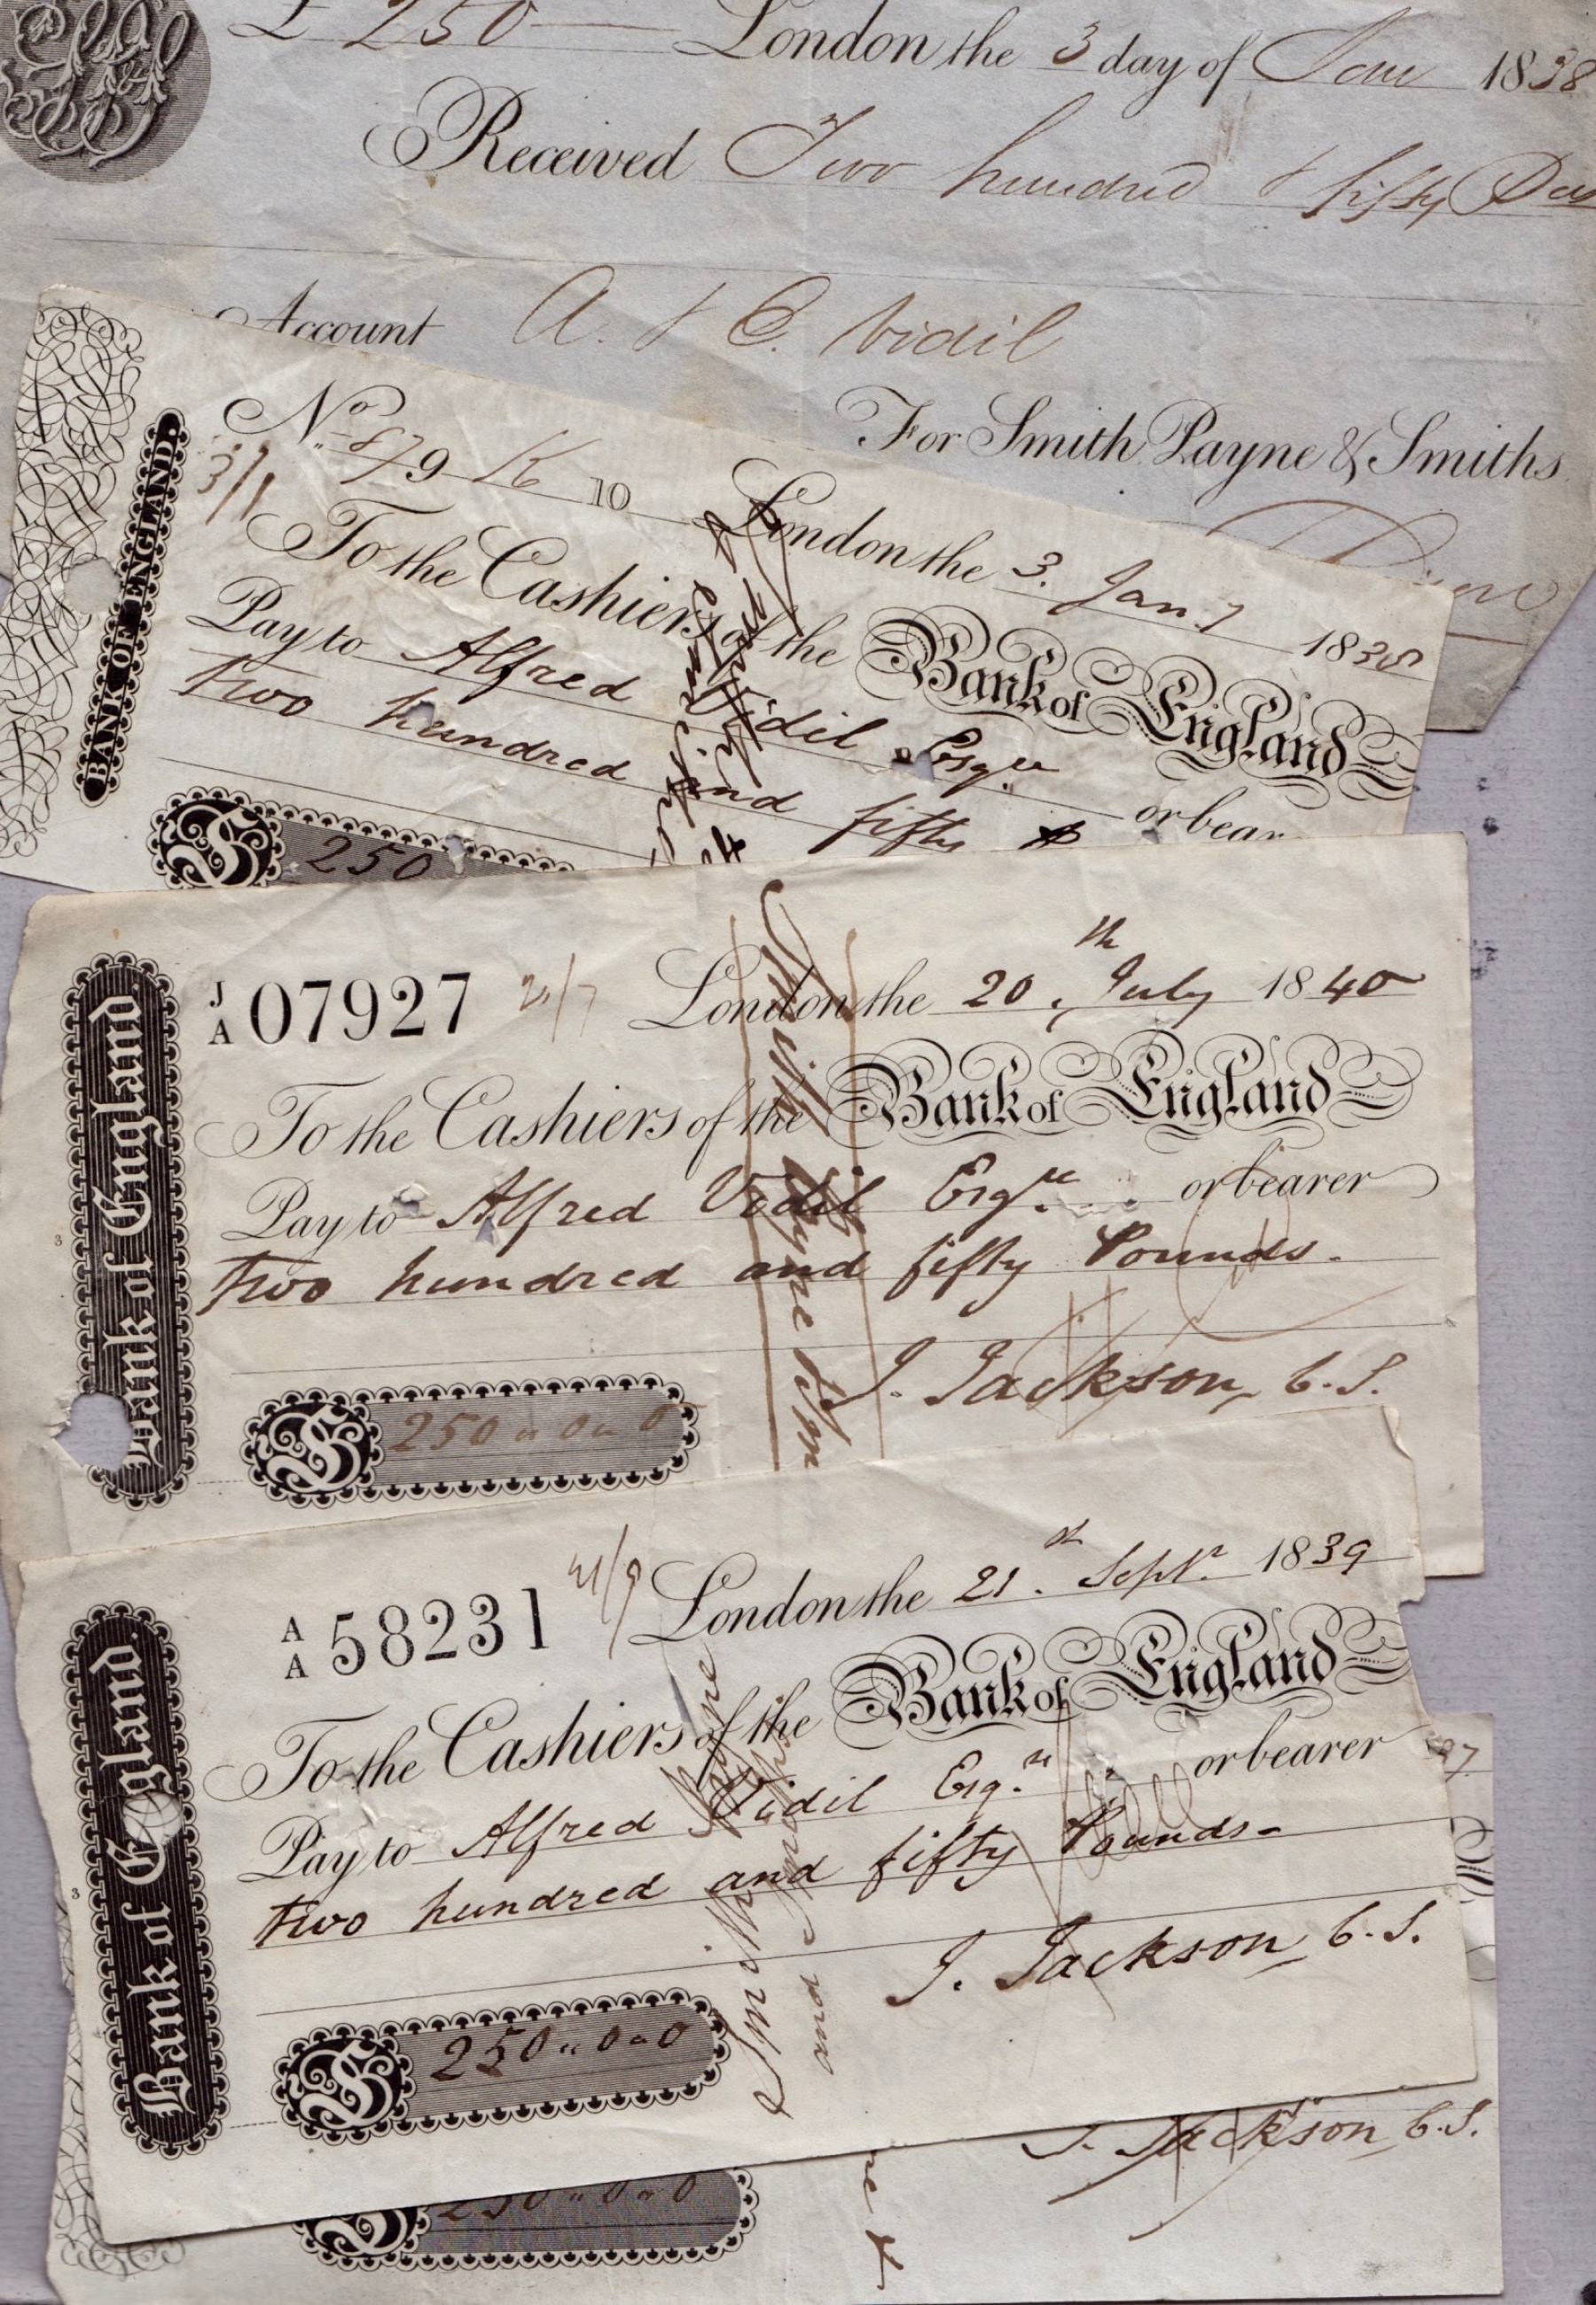 £ 250 London the 3 day of Jan 1838
Received Two hundred & fifty
Account A. & C. Vidil
For Smith Payne & Smiths
BANK OF ENGLAND.
No. 879 K 10 London the 3. Jany 1838
3/1
To the Cashiers of the Bank of England
Pay to Alfred Vidil Esqre or bear
two hundred and fifty
250
Bank of England.
J/A 07927 London the 20th July 1840
To the Cashiers of the Bank of England
Pay to Alfred Vidil Esqre or bearer
two hundred and fifty Pounds.
J. Jackson C.S.
£ 250 " 0 " 0
Smith Payne & Sm
3
Bank of England.
A/A 58231 21/9 London the 21st Septr 1839
To the Cashiers of the Bank of England
Pay to Alfred Vidil Esqre or bearer
two hundred and fifty Pounds
J. Jackson C.S.
£ 250 " 0 " 0
Smith Payne
and Smiths
3
J. Jackson C.S.
250 " 0 " 0